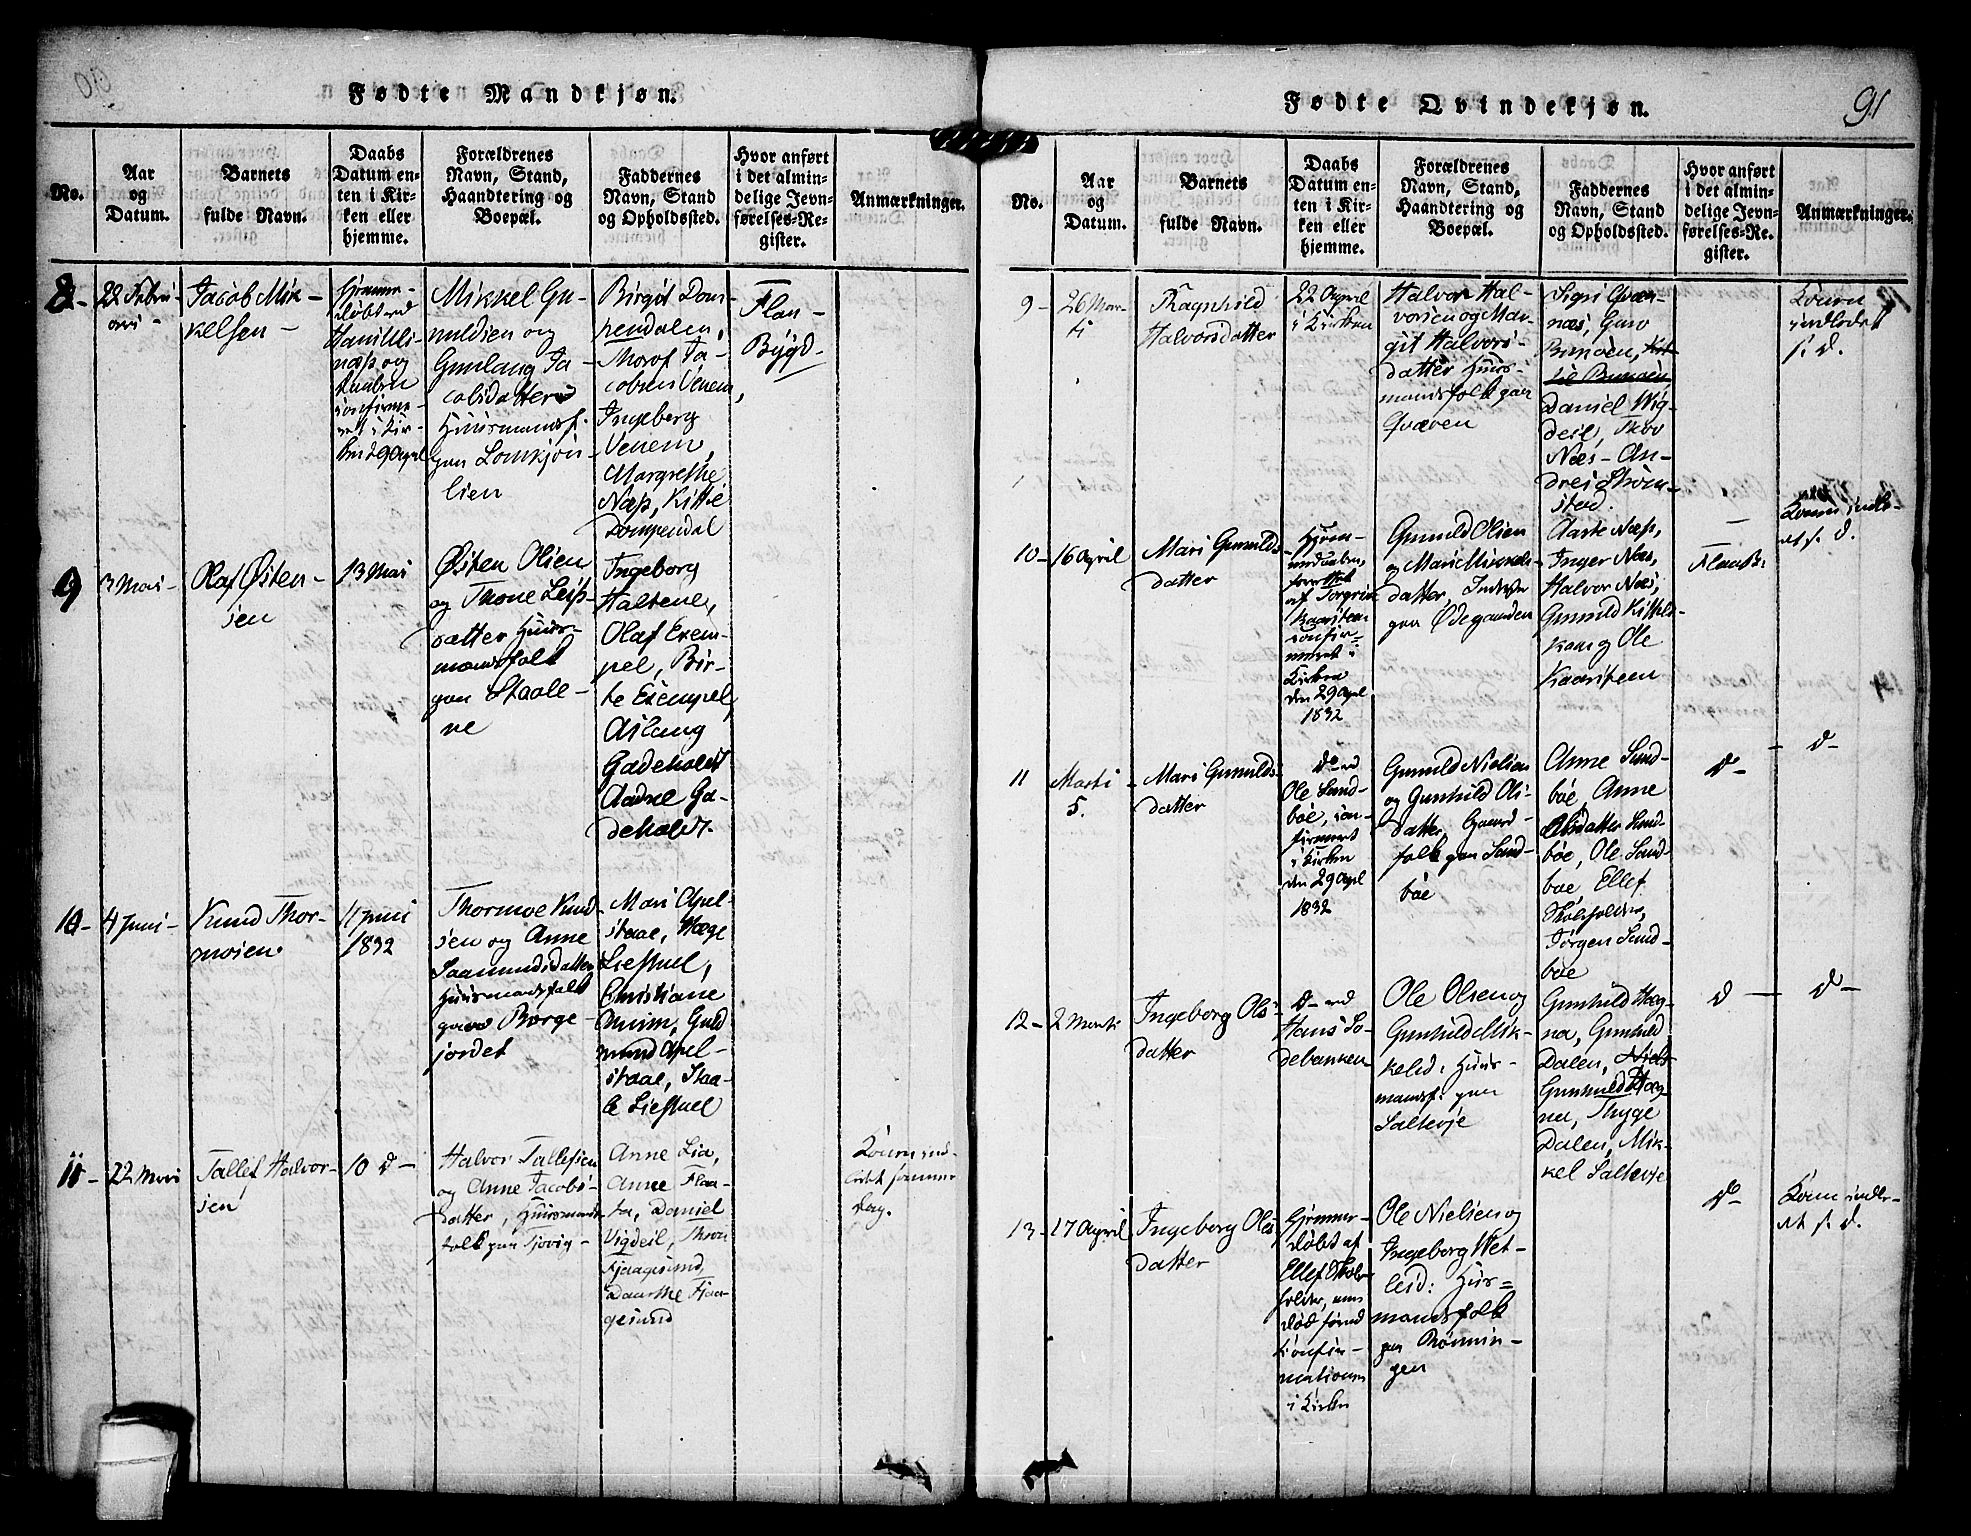 90
Fødte Mandkjøn.
No.
Aar
og
Datum.
Barnets
fulde Navn.
Daabs
Datum en-
ten i Kir-
ken eller
hjemme.
Forældrenes
Navn, Stand,
Haandtering og
Boepæl.
Faddernes
Navn, Stand
og Opholdssted.
Hvor anført
i det almin-
delige Jevn-
førelses-Re-
gister.
Anmærkninger.
8 -
22 Febru
ari -
Jacob Mik -
kelsen -
Hjemme -
døbt ved
næss og
i Kir-
ken d 29 April
Mikkel Gu-
nuldsen og
Gunlaug Ja
cobsdatter
Huusmandsf.
paa Lomkjøn-
lien
Birgit Dom-
pendalen,
Jacobsen Venem,
Ingeborg
Venem,
Margrethe
Næss, Kittil
Dompendal
Flan -
Bÿgd -
9
3 Mai -
Olaf Østen -
sen
13 Mai
Østen Olsen
og Thone Leifs-
datter Huus-
mandsfolk
paa Staale -
ne
Ingeborg
Haltene,
Olaf Exem-
pel, Bir-
te Exempel,
Aslaug
Gadeholdt
Aadne Ga-
deholdt.
10 -
4 Juni -
Knud Thor-
mosen
11 Juni
1832
Thormoe Knud
sen og Anne
Saamundsdatter
Huusmandsfolk
paa Borge -
jordet
Mari Apel-
staae, Hæge
Liestuel,
Christiane
Moen, Guld
mund Apel -
staae, Staa-
le Liestuel
11 -
22 Mai
Tallef Halvor-
sen
10 d -
Halvor Tallefsen
og Anne Jacobs-
datter, Huusmands
folk paa Sjovig -
Anne Lia,
Anne Flaa-
ta, Daniel
Vigdeil, Thron
Fjaagesund,
Daarthe Fjaa-
gesund
Konen ind-
ledet samme
Dag.
91
Fødte Qvindekjøn.
No.
Aar
og
Datum.
Barnets
fulde Navn.
Daabs
Datum en-
ten i Kir-
ken eller
hjemme.
Forældrenes
Navn, Stand,
Haandtering og
Boepæl.
Faddernes
Navn, Stand
og Opholdssted.
Hvor anført
i det almin-
delige Jevn-
førelses-Re-
gister.
Anmærkninger.
9 -
26 Mar-
ti
Ragnhild
Halvorsdatter
22 April
i Kirken
Halvor Hal-
vorsen og Mar-
git Halvors-
datter Huus-
mandsfolk paa
Qvæven
Sigri Qvæn-
næs, Guro
Brunoen,
Daniel Vig-
deil, Thov
Næs - An-
drei Strøm-
stad.
Konen
indledet
s. d.
10 -
16 April
Mari Gunulds-
datter
Hjem-
af Torgrim
Kaasteen
confir-
meret i
Kirken
den 29 April
1832
Gunuld Olsen
og Mari
datter, Inderste
paa Ødegaarden
Aaste Næss,
Inger Næs,
Halvor Næs,
Gunuld Kittels-
kaas og Ole
Kaasteen
Flaa B.
Konen indle-
det s. d.
11
Marti
5.
Mari Gunulds-
datter
do ved
Ole Sund-
bøe, con-
firmeret
i Kirken
den 29 April
1832
Gunuld Nielsen
og Gunhild Ols-
datter, Gaard-
folk paa Sund-
bøe
Anne Sund-
bøe, Anne
Olsdatter Sund-
bøe, Ole Sund-
bøe Ellef
Jørgen Sund-
bøe
d -
- d -
12 -
2 Marti
Ingeborg Ols-
datter
d - ved
Hans So-
debakken
Ole Olsen og
Gunhild Mik-
kelsd. Huus-
mandsf. paa
Saltevje
Gunhild Hæg-
na, Gunuld
Dalen,
Gunhild Hæg
na, Thyge
Dalen, Mik-
kel Saltevje
d -
d -
13 -
17 April
Ingeborg Ols-
datter
Hjemme-
døbt af
Ellef Skole-
holder, men
død førend
Confir-
mationen
i Kirken
Ole Nielsen og
Ingeborg Wet-
lesd: Huus=
mandsfolk
paa Rønnin-
gen
do -
Konen indle-
det s. d.